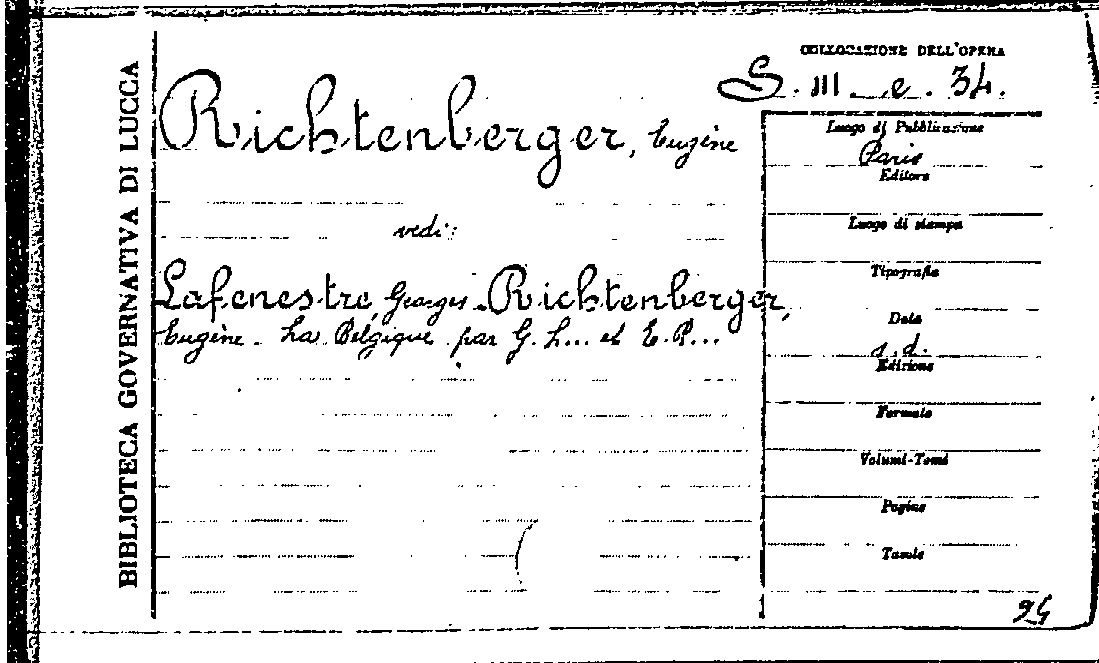 BIBLIOTECA GOVERNATIVA DI LUCCA
COLLOCAZIONE DELL'OPERA
S. III. e. 34.
Richtenberger, Eugène
vedi:
Lafenestre, Georges - Richtenberger,
Eugène - La Belgique par G. L... et E. R...
Luogo di Pubblicazione
Paris
Editore
Luogo di stampa
Tipografia
Data
s.d.
Edizione
Formato
Volumi-Tomi
Pagine
Tavole